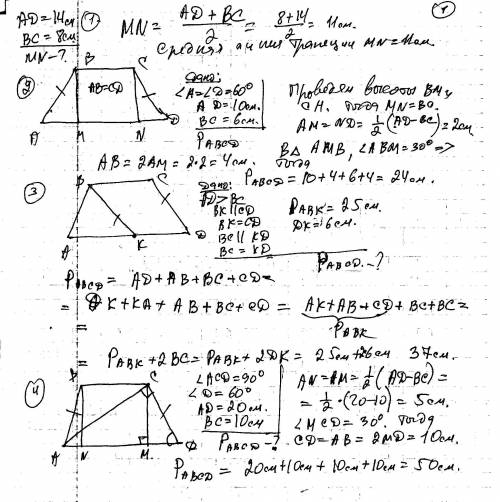 AD = 14см
BC = 8см
MN - ?
① MN = (AD + BC)/2 = (8+14)/2 = 11см.
Средняя линия трапеции MN = 11см.
②
B C
AB=CD
A M N D
Дано:
∠A=∠D=60°
AD=10см.
BC=6см.
P ABCD
Проведем высоты BM и
CH. Тогда MN=BC.
AM = ND = 1/2 (AD-BC) = 2см
В Δ AMB, ∠ABM=30° =>
тогда
AB = 2AM = 2·2 = 4см.
P ABCD = 10+4+6+4 = 24см.
③
B C
A K D
Дано:
AD > BC
BK || CD
BK = CD
BC || KD
BC = KD
P ABK = 25см.
DK = 6см.
P ABCD - ?
P ABCD = AD + AB + BC + CD =
= DK + KA + AB + BC + CD = AK + AB + CD + BC + BC =
P ABK
=
= P ABK + 2BC = P ABK + 2DK = 25см + 2·6см 37см.
④
B C
A N M D
∠ACD=90°
∠D=60°
AD=20см.
BC=10см
P ABCD - ?
AN = AM = 1/2 (AD-BC) =
= 1/2 · (20-10) = 5см.
∠MCD = 30°. Тогда
CD = AB = 2MD = 10см.
P ABCD = 20см + 10см + 10см + 10см = 50см.